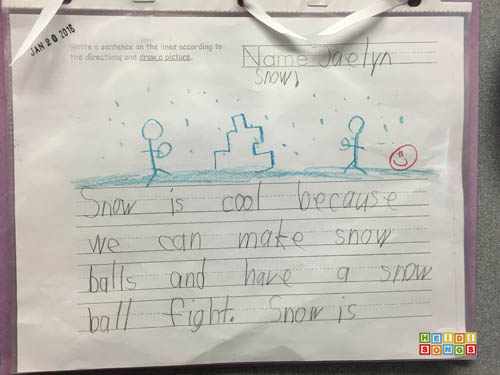 JAN 20 2016
Write a sentence on the lines according to
the directions and draw a picture.
Name Jaelyn
Snow,
Snow is cool because
we can make snow
balls and have a snow
ball fight. Snow is
HEIDI
SONGS